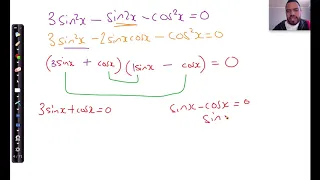 3sin²x - sin2x - cos²x = 0
3sin²x - 2sinxcosx - cos²x = 0
(3sinx + cosx)(1sinx - cosx) = 0
3sinx + cosx = 0
sinx - cosx = 0
sin